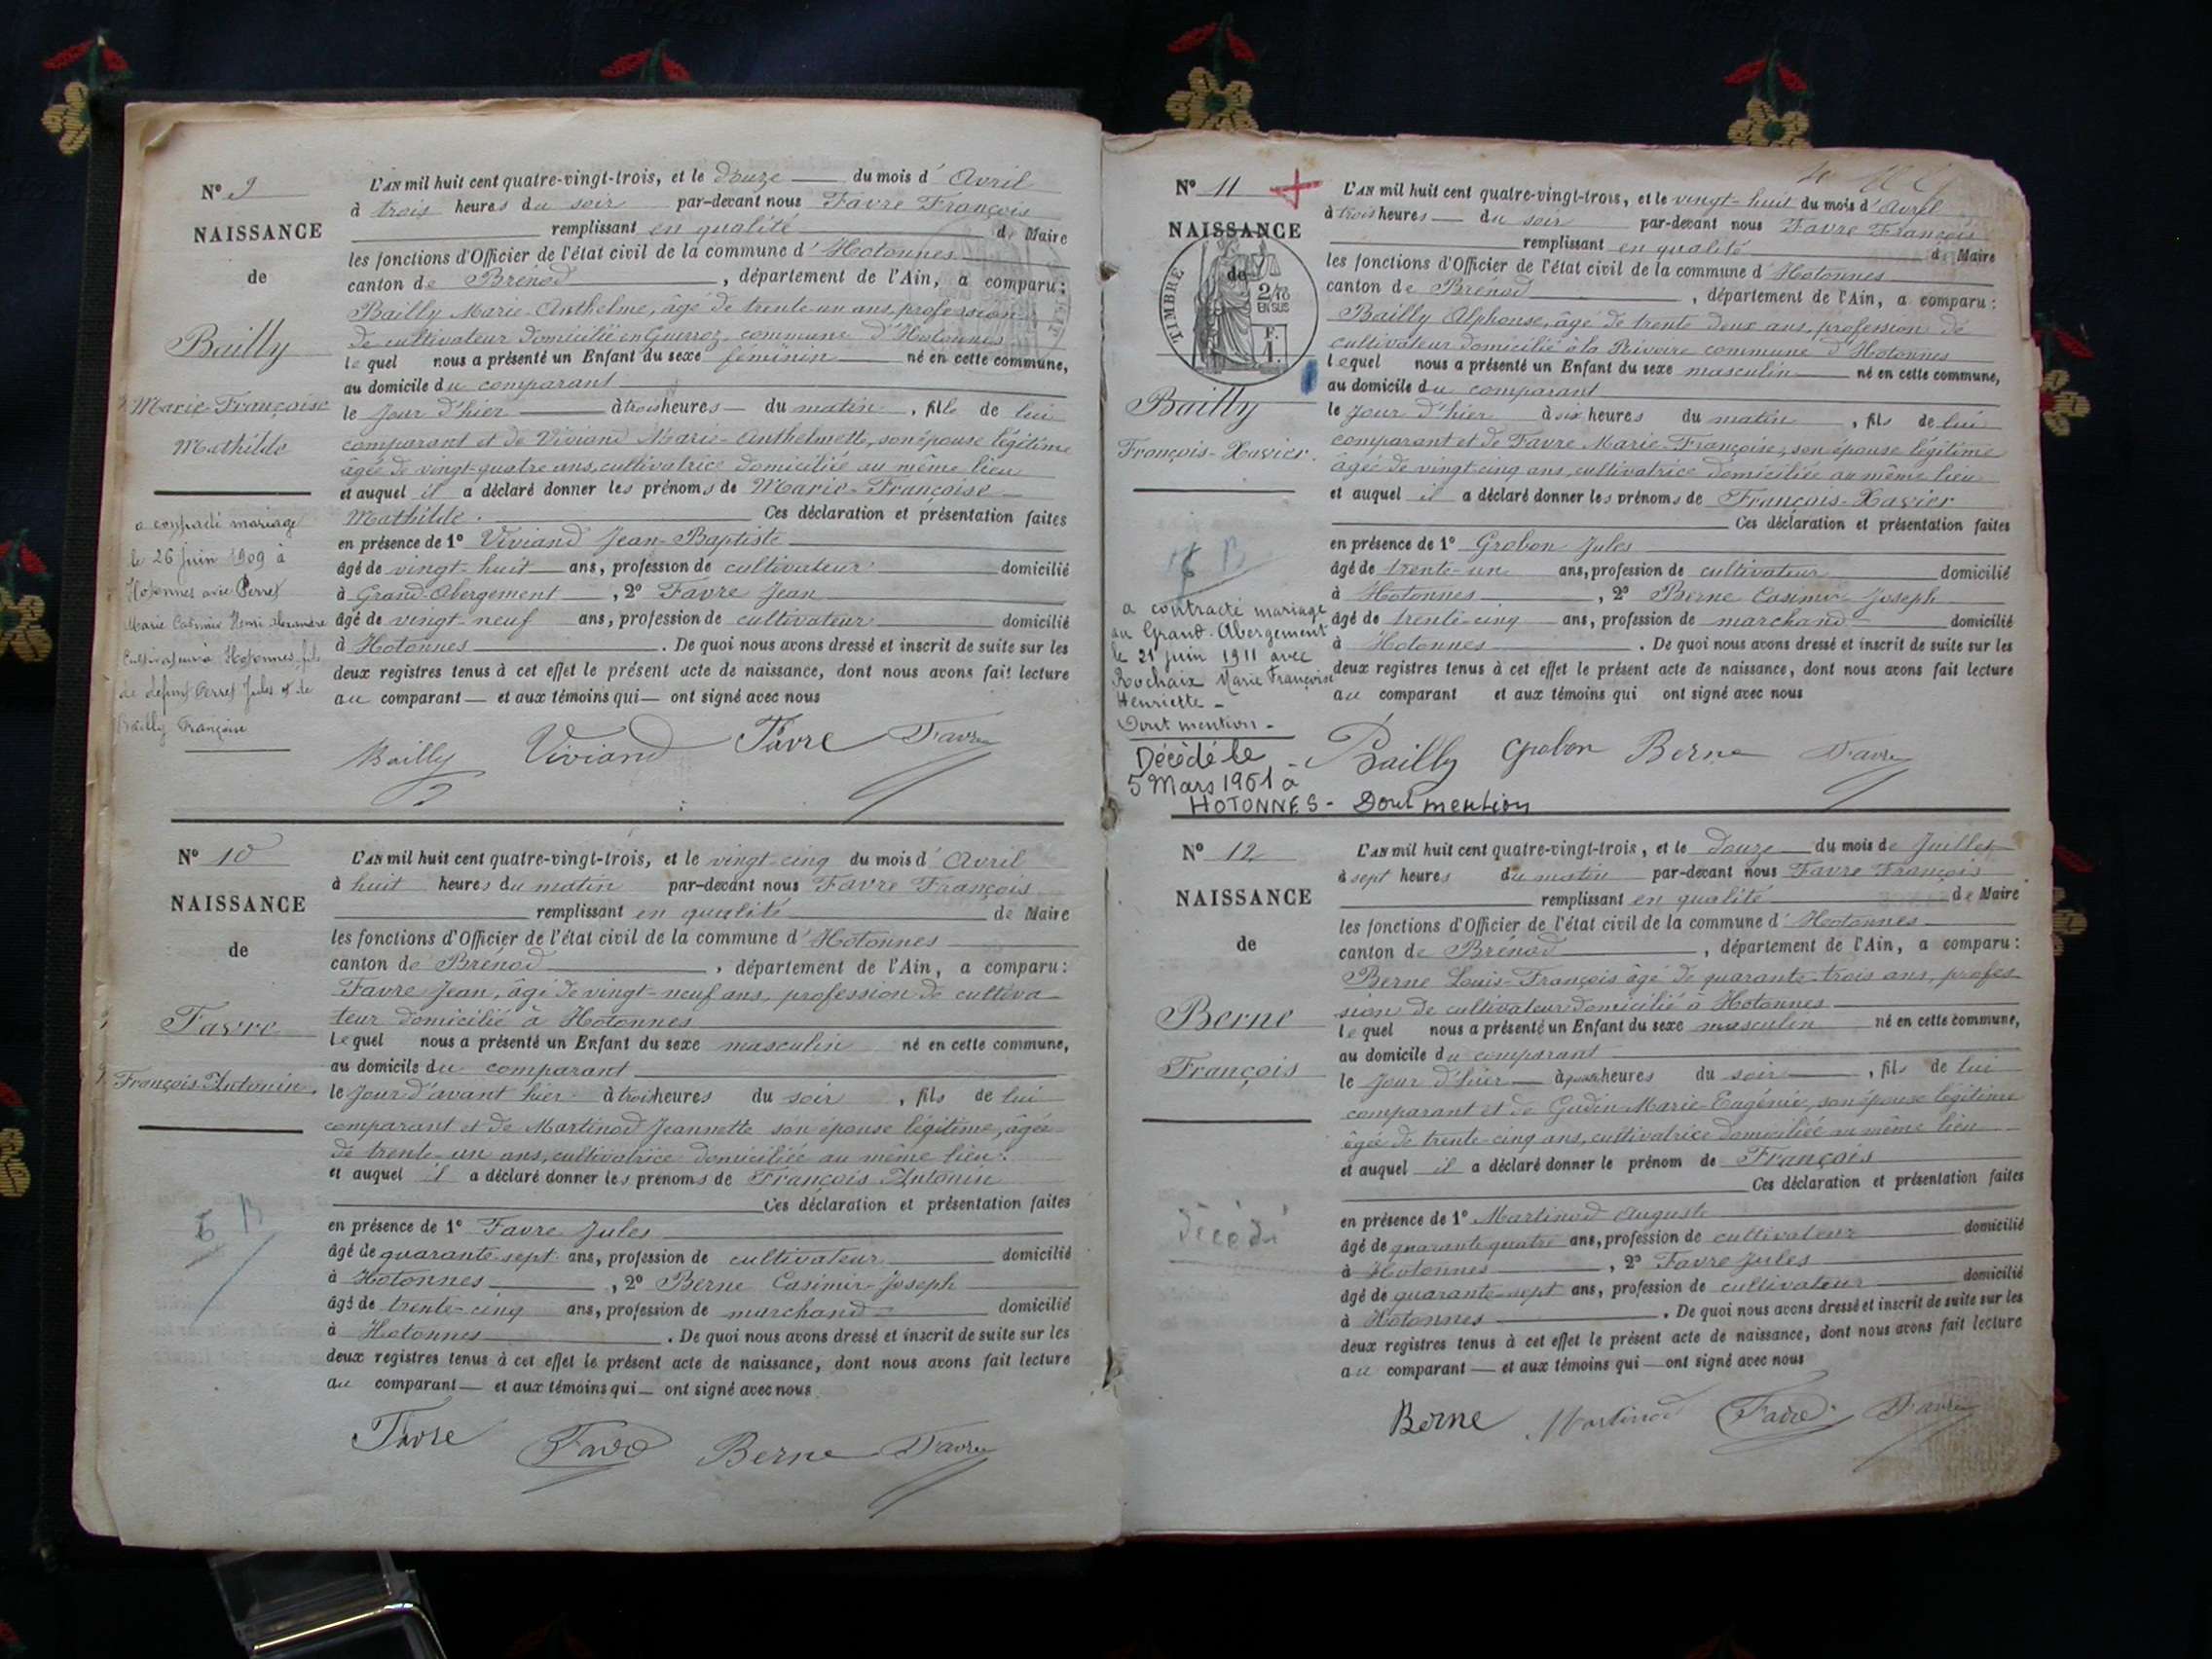 N° 9
NAISSANCE
de
Bailly
Marie-Françoise
Mathilde
a contracté mariage
le 26 juin 1909 à
Hotonnes avec Perret
Marie Casimir Henri Alexandre
cultivateur à Hotonnes fils
de défunt Perret Jules et de
Bailly Françoise
L'AN mil huit cent quatre-vingt-trois, et le douze du mois d'Avril
à trois heures du soir par-devant nous Favre François
remplissant en qualité de Maire
les fonctions d'Officier de l'état civil de la commune d'Hotonnes
canton de Brénod, département de l'Ain, a comparu:
Bailly Marie-Anthelme, âgé de trente un ans, profession
de cultivateur domicilié en Guerroz, commune d'Hotonnes
lequel nous a présenté un Enfant du sexe féminin né en cette commune,
au domicile du comparant
le jour d'hier à trois heures du matin, fils de lui
comparant et de Viviand Marie-Anthelmette, son épouse légitime
âgée de vingt-quatre ans, cultivatrice domiciliée au même lieu
et auquel il a déclaré donner les prénoms de Marie-Françoise
Mathilde. Ces déclaration et présentation faites
en présence de 1° Viviand Jean-Baptiste
âgé de vingt-huit ans, profession de cultivateur domicilié
à Grand-Abergement, 2° Favre Jean
âgé de vingt-neuf ans, profession de cultivateur domicilié
à Hotonnes. De quoi nous avons dressé et inscrit de suite sur les
deux registres tenus à cet effet le présent acte de naissance, dont nous avons fait lecture
au comparant et aux témoins qui ont signé avec nous
Bailly Viviand Favre Favre
N° 10
NAISSANCE
de
Favre
François-Antonin.
5 B
L'AN mil huit cent quatre-vingt-trois, et le vingt-cinq du mois d'Avril
à huit heures du matin par-devant nous Favre François
remplissant en qualité de Maire
les fonctions d'Officier de l'état civil de la commune d'Hotonnes
canton de Brénod, département de l'Ain, a comparu:
Favre Jean, âgé de vingt-neuf ans, profession de cultiva
teur domicilié à Hotonnes
lequel nous a présenté un Enfant du sexe masculin né en cette commune,
au domicile du comparant
le jour d'avant hier à trois heures du soir, fils de lui
comparant et de Martinod Jeannette son épouse légitime, âgée
de trente-un ans, cultivatrice domiciliée au même lieu.
et auquel il a déclaré donner les prénoms de François-Antonin
Ces déclaration et présentation faites
en présence de 1° Favre Jules
âgé de quarante-sept ans, profession de cultivateur domicilié
à Hotonnes, 2° Berne Casimir-Joseph
âgé de trente-cinq ans, profession de marchand domicilié
à Hotonnes. De quoi nous avons dressé et inscrit de suite sur les
deux registres tenus à cet effet le présent acte de naissance, dont nous avons fait lecture
au comparant et aux témoins qui ont signé avec nous.
Favre Favre Berne Favre
N° 11
NAISSANCE
de
TIMBRE
2/10
EN SUS
F.
1.
Bailly
François-Xavier.
B
a contracté mariage
au Grand-Abergement
le 21 juin 1911 avec
Rochaix Marie Françoise
Henriette -
Dont mention -
Décédé le
5 Mars 1961 à
HOTONNES - Dont mention
L'AN mil huit cent quatre-vingt-trois, et le vingt-huit du mois d'Avril
à trois heures du soir par-devant nous Favre François
remplissant en qualité de Maire
les fonctions d'Officier de l'état civil de la commune d'Hotonnes
canton de Brénod, département de l'Ain, a comparu:
Bailly Alphonse, âgé de trente deux ans, profession de
cultivateur domicilié à la Rivoire commune d'Hotonnes
lequel nous a présenté un Enfant du sexe masculin né en cette commune,
au domicile du comparant
le jour d'hier à six heures du matin, fils de lui
comparant et de Favre Marie-Françoise, son épouse légitime
âgée de vingt-cinq ans, cultivatrice domiciliée au même lieu
et auquel il a déclaré donner les prénoms de François-Xavier
Ces déclaration et présentation faites
en présence de 1° Grobon Jules
âgé de trente-un ans, profession de cultivateur domicilié
à Hotonnes, 2° Berne Casimir-Joseph
âgé de trente-cinq ans, profession de marchand domicilié
à Hotonnes. De quoi nous avons dressé et inscrit de suite sur les
deux registres tenus à cet effet le présent acte de naissance, dont nous avons fait lecture
au comparant et aux témoins qui ont signé avec nous
Bailly Grobon Berne Favre
N° 12
NAISSANCE
de
Berne
François
Décédé
L'AN mil huit cent quatre-vingt-trois, et le douze du mois de Juillet
à sept heures du matin par-devant nous Favre François
remplissant en qualité de Maire
les fonctions d'Officier de l'état civil de la commune d'Hotonnes
canton de Brénod, département de l'Ain, a comparu:
Berne Louis-François âgé de quarante-trois ans, profes
sion de cultivateur domicilié à Hotonnes
lequel nous a présenté un Enfant du sexe masculin né en cette commune,
au domicile du comparant
le jour d'hier à heures du soir, fils de lui
comparant et de Gudin Marie-Eugénie, son épouse légitime
âgée de trente-cinq ans, cultivatrice domiciliée au même lieu
et auquel il a déclaré donner le prénom de François
Ces déclaration et présentation faites
en présence de 1° Martinod Auguste
âgé de quarante quatre ans, profession de cultivateur domicilié
à Hotonnes, 2° Favre Jules
âgé de quarante-sept ans, profession de cultivateur domicilié
à Hotonnes. De quoi nous avons dressé et inscrit de suite sur les
deux registres tenus à cet effet le présent acte de naissance, dont nous avons fait lecture
au comparant et aux témoins qui ont signé avec nous
Berne Martinod Favre Favre